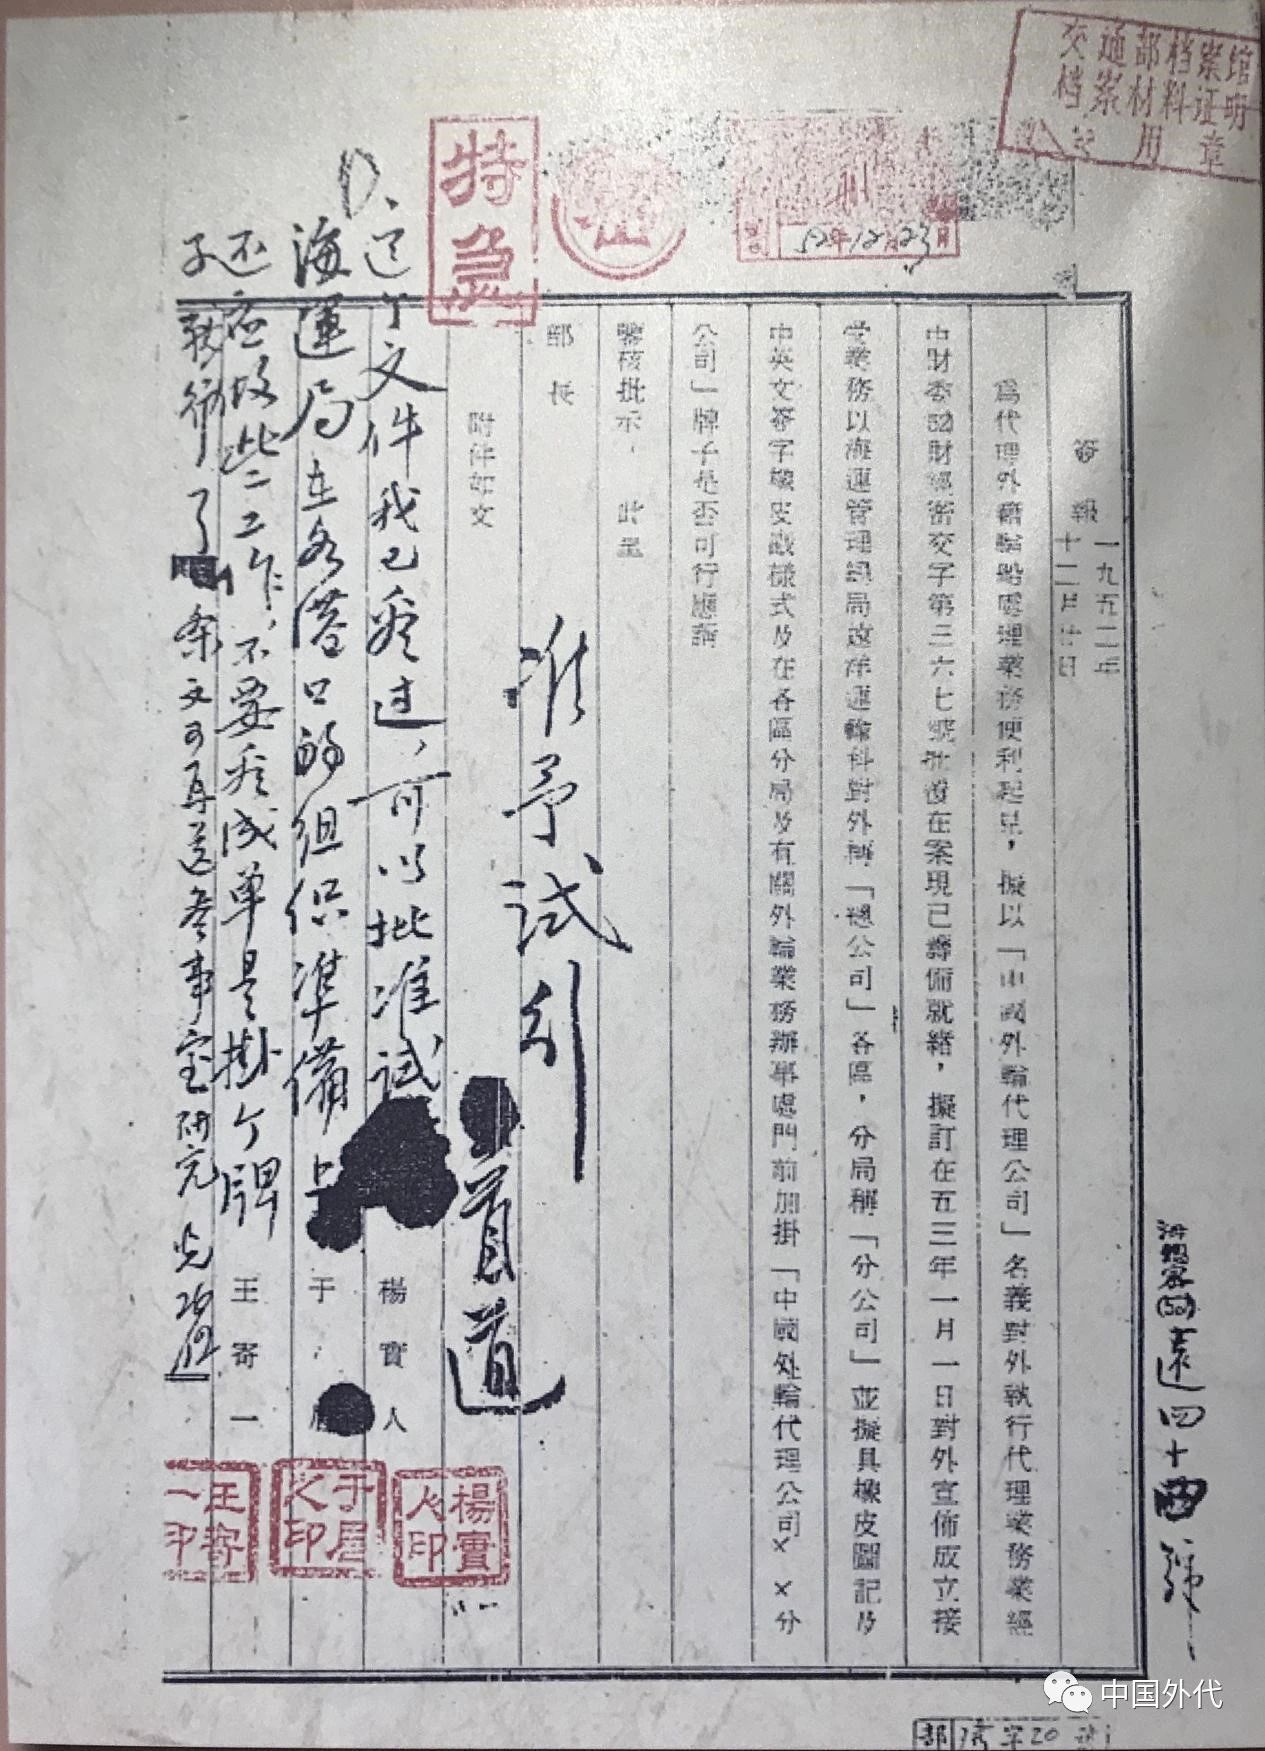 交通部档案馆
档案材料证明
用章
特急
52年12月23日
海總密(52)遠四十四號
簽報
一九五二年
十二月廿日
爲代理外籍輪船處理業務便利起見，擬以「中國外輪代理公司」名義對外執行代理業務業經
中財委52財經密交字第三六七號批復在案現已籌備就緒，擬訂在五三年一月一日對外宣佈成立接
受業務以海運管理總局遠洋運輸科對外稱「總公司」各區，分局稱「分公司」並擬具橡皮圖記及
中英文簽字橡皮戳樣式及在各區分局及有關外輪業務辦事處門前加掛「中國外輪代理公司××分
公司」牌子是否可行應請
鑒核批示。此呈
部長
附件如文
准予试行
這个文件我已看过，可以批准试
海運局在各港口的组织準備
还应做些工作，不要看成单是掛个牌
子就行了
条文可再送参事室研究
楊實人
于眉
王寄一
楊實人印
于眉之印
王寄一印
中国外代